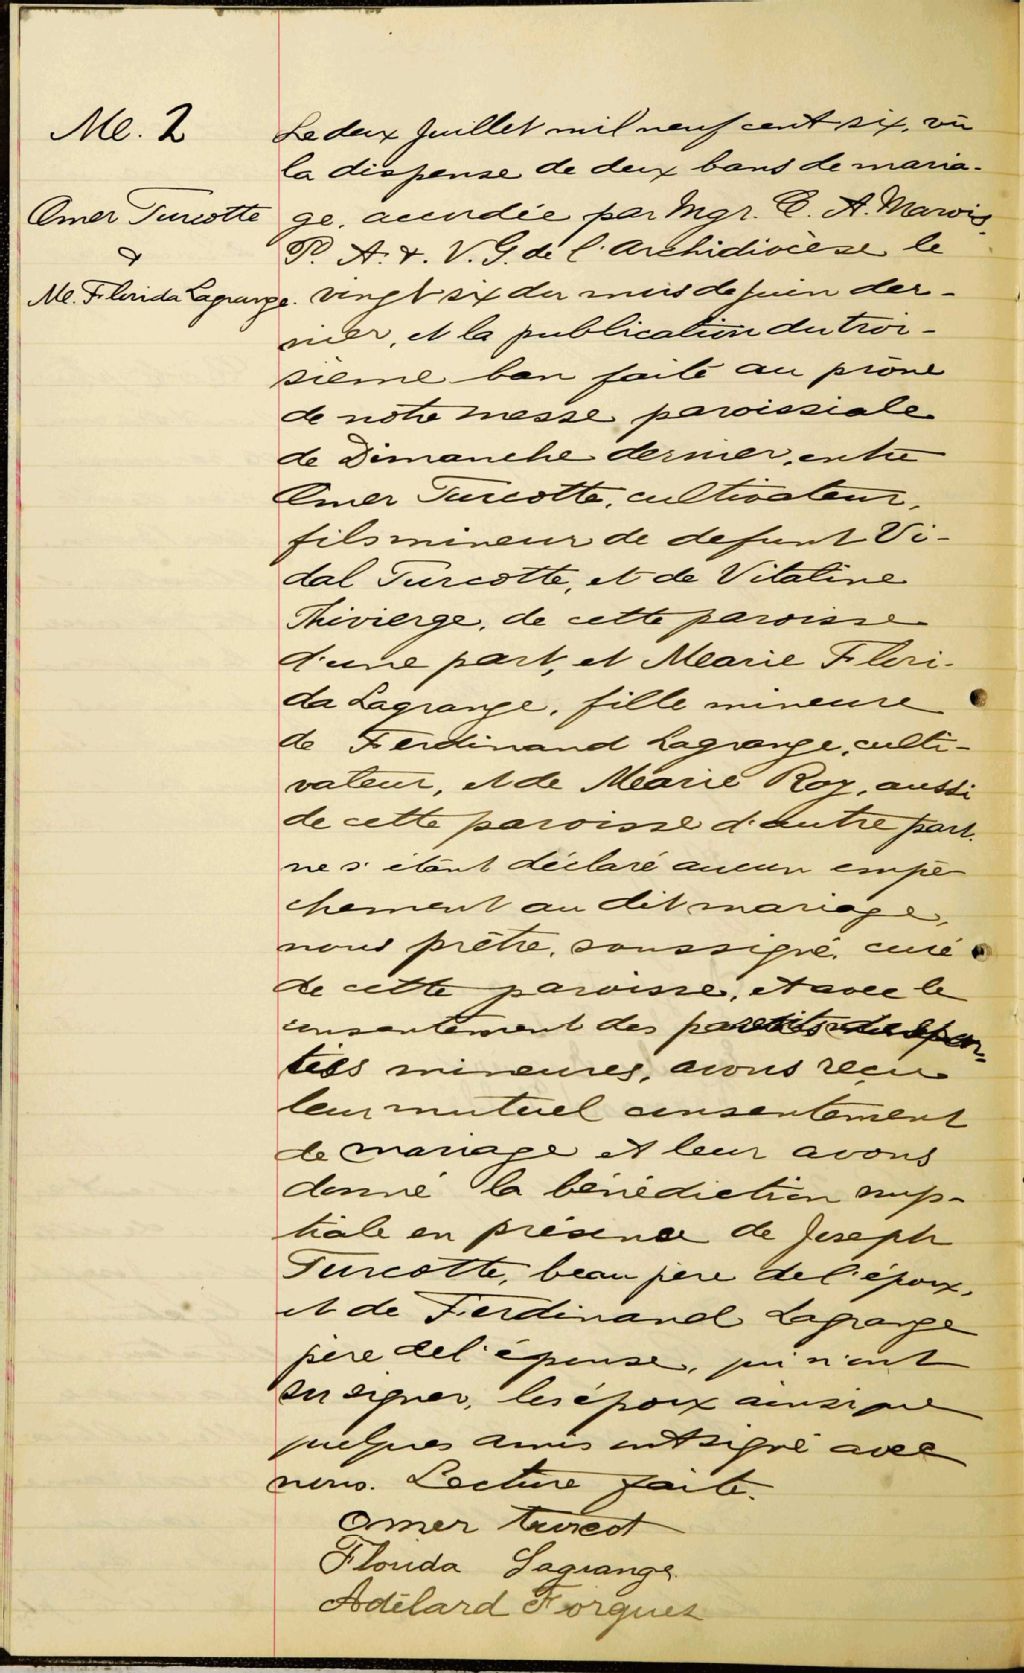 M. 2
Omer Turcotte
&
M. Florida Lagrange.
Le deux Juillet mil neuf cent six, vû
la dispense de deux bans de maria-
ge, accordée par Mgr. C. A. Marois,
P. A. & V. G. de l'Archidiocèse le
vingt six du mois de juin der-
nier, et la publication du troi-
sième ban faite au prône
de notre messe paroissiale
de Dimanche dernier, entre
Omer Turcotte, cultivateur,
fils mineur de defunt Vi-
dal Turcotte, et de Vitaline
Thivierge, de cette paroisse
d'une part, et Marie Flori-
da Lagrange, fille mineure
de Ferdinand Lagrange, culti-
vateur, et de Marie Roy, aussi
de cette paroisse d'autre part.
ne s'étant déclaré aucun empê-
chement au dit mariage,
nous prêtre, soussigné, curé
de cette paroisse, et avec le
consentement des par
ties mineures, avons reçu
leur mutuel consentement
de mariage et leur avons
donné la bénédiction nup-
tiale en présence de Joseph
Turcotte, beau père de l'époux,
et de Ferdinand Lagrange
père de l'épouse, qui n'ont
su signer, les époux ainsi que
quelques amis ont signé avec
nous. Lecture faite.
Omer turcot
Florida Lagrange
Adélard Forgues